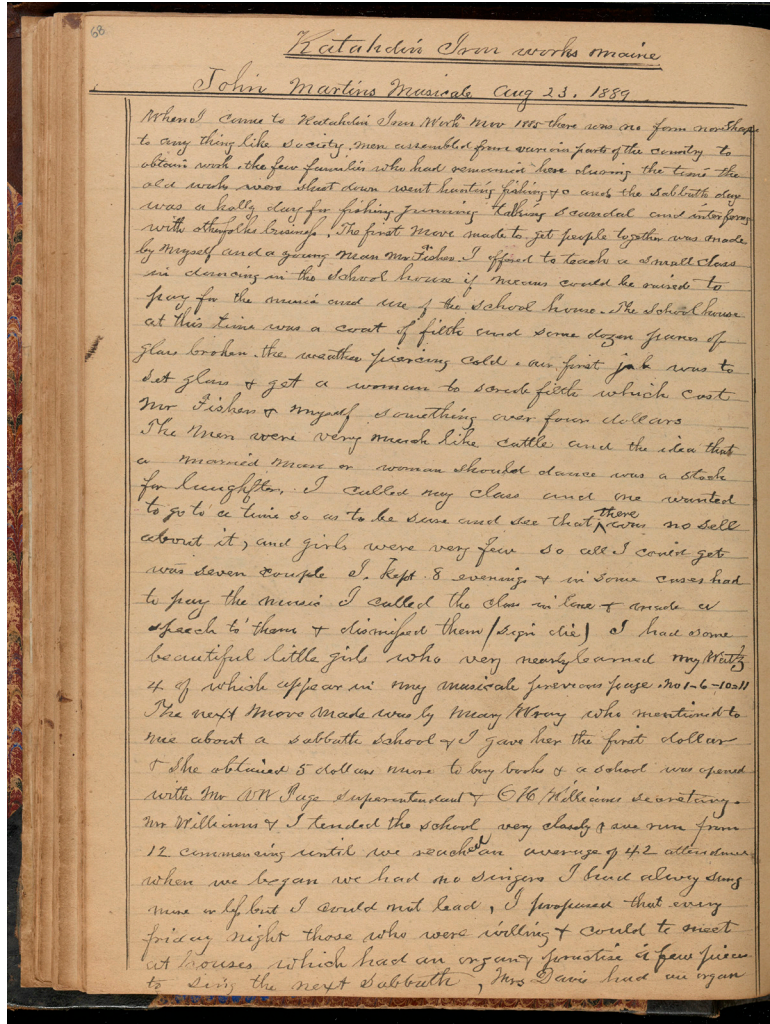 68
Katahdin Iron works Maine
John Martins Musicale Aug 23. 1889
When I came to Katahdin Iron Work Nov 1885 there was no form nor shape
to any thing like society, men assembled from various parts of the country to
obtain work. the few families who had remained here during the time the
old works were shut down went hunting fishing &c and the Sabbath day
was a holly day for fishing gunning talking scandal and interfering
with other folks business. The first move made to get people together was made
by myself and a young man Mr Fisher. I offered to teach a small class
in dancing in the school house if means could be raised to
pay for the music and use of the school house. The school house
at this time was a coat of filth and some dozen panes of
glass broken. the weather piercing cold. our first job was to
set glass & get a woman to scrub filth which cost
Mr Fisher & myself something over four dollars
The men were very much like cattle and the idea that
a married man or woman should dance was a stock
for laughter. I called my class and one wanted
to go to a time so as to be sure and see that there was no sell
about it, and girls were very few so all I could get
was seven couple I. Kept 8 evenings & in some cases had
to pay the music I called the class in & made a
speech to them & dismissed them (sign die) I had some
beautiful little girls who very nearly learned my Waltz
4 of which appear in my musicale previous page. No 1-6-10&11
The next move made was by Mary Wray who mentioned to
me about a sabbath school & I gave her the first dollar
& she obtained 5 dollars more to buy books & a school was opened
with Mr W Page superentendant & O H Williams secretary.
Mr Williams & I tended the school very closely & we run from
12 commencing until we reached an average of 42 attendance
when we began we had no singers I had alway sung
more or less but I could not lead, I proposed that every
friday night those who were willing & could to meet
at houses which had an organ & practise a few pieces
to sing the next Sabbath, Mrs Davis had an organ